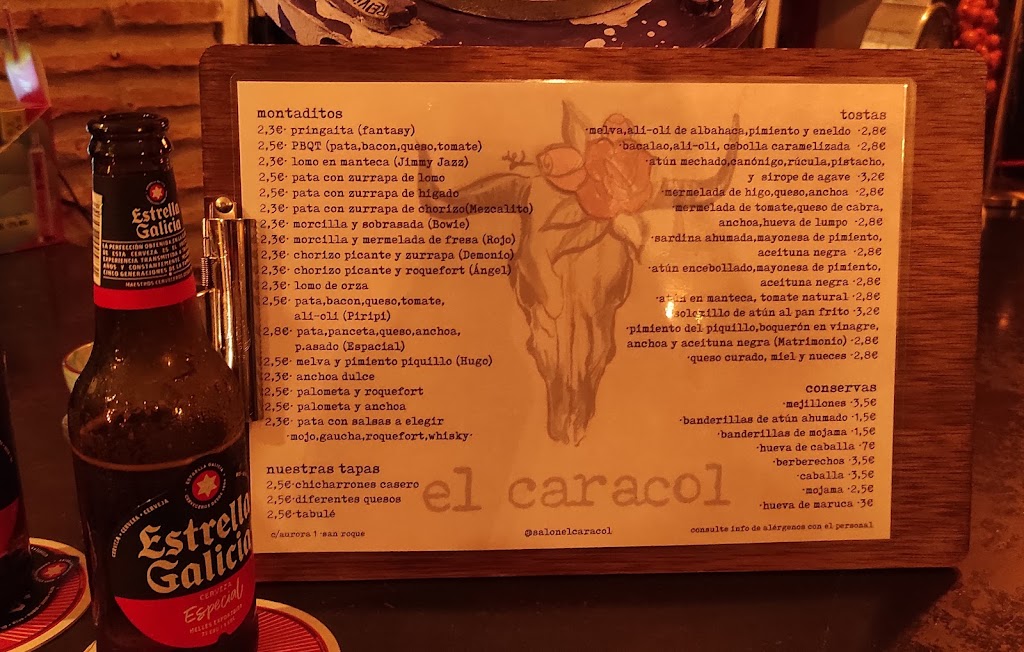 montaditos
2,3€· pringaita (fantasy)
2,5€· PBQT (pata,bacon,queso,tomate)
2,3€· lomo en manteca (Jimmy Jazz)
2,5€· pata con zurrapa de lomo
2,5€· pata con zurrapa de higado
2,3€· pata con zurrapa de chorizo(Mezcalito)
2,3€· morcilla y sobrasada (Bowie)
2,3€· morcilla y mermelada de fresa (Rojo)
2,3€· chorizo picante y zurrapa (Demonio)
2,3€· chorizo picante y roquefort (Ángel)
2,3€· lomo de orza
2,5€· pata,bacon,queso,tomate,
ali-oli (Piripi)
2,8€· pata,panceta,queso,anchoa,
p.asado (Espacial)
2,5€· melva y pimiento piquillo (Hugo)
2,3€· anchoa dulce
2,5€· palometa y roquefort
2,5€· palometa y anchoa
2,3€· pata con salsas a elegir
·mojo,gaucha,roquefort,whisky·
nuestras tapas
2,5€·chicharrones casero
2,5€·diferentes quesos
2,5€·tabulé
c/aurora 1 ·san roque
tostas
·melva,ali-oli de albahaca,pimiento y eneldo ·2,8€
·bacalao,ali-oli, cebolla caramelizada ·2,8€
·atún mechado,canónigo,rúcula,pistacho,
y sirope de agave ·3,2€
·mermelada de higo,queso,anchoa ·2,8€
·mermelada de tomate,queso de cabra,
anchoa,hueva de lumpo ·2,8€
·sardina ahumada,mayonesa de pimiento,
aceituna negra ·2,8€
·atún encebollado,mayonesa de pimiento,
aceituna negra ·2,8€
·atún en manteca, tomate natural ·2,8€
solomillo de atún al pan frito ·3,2€
·pimiento del piquillo,boquerón en vinagre,
anchoa y aceituna negra (Matrimonio) ·2,8€
·queso curado, miel y nueces ·2,8€
conservas
·mejillones ·3,5€
·banderillas de atún ahumado ·1,5€
·banderillas de mojama ·1,5€
·hueva de caballa ·7€
·berberechos ·3,5€
·caballa ·3,5€
·mojama ·2,5€
·hueva de maruca ·3€
el caracol
@salonelcaracol
consulte info de alérgenos con el personal
Estrella
Galicia
LA PERFECCIÓN OBTENIDA EN
DE ESTA CERVEZA ES EL
EXPERIENCIA TRANSMITIDA
AÑOS Y CONSTANTEMENTE
CINCO GENERACIONES DE LA
MAESTROS CERVECEROS
CERVEZA · CERVEZA · CERVEZA
Estrella
Galicia
CERVEZA
Especial